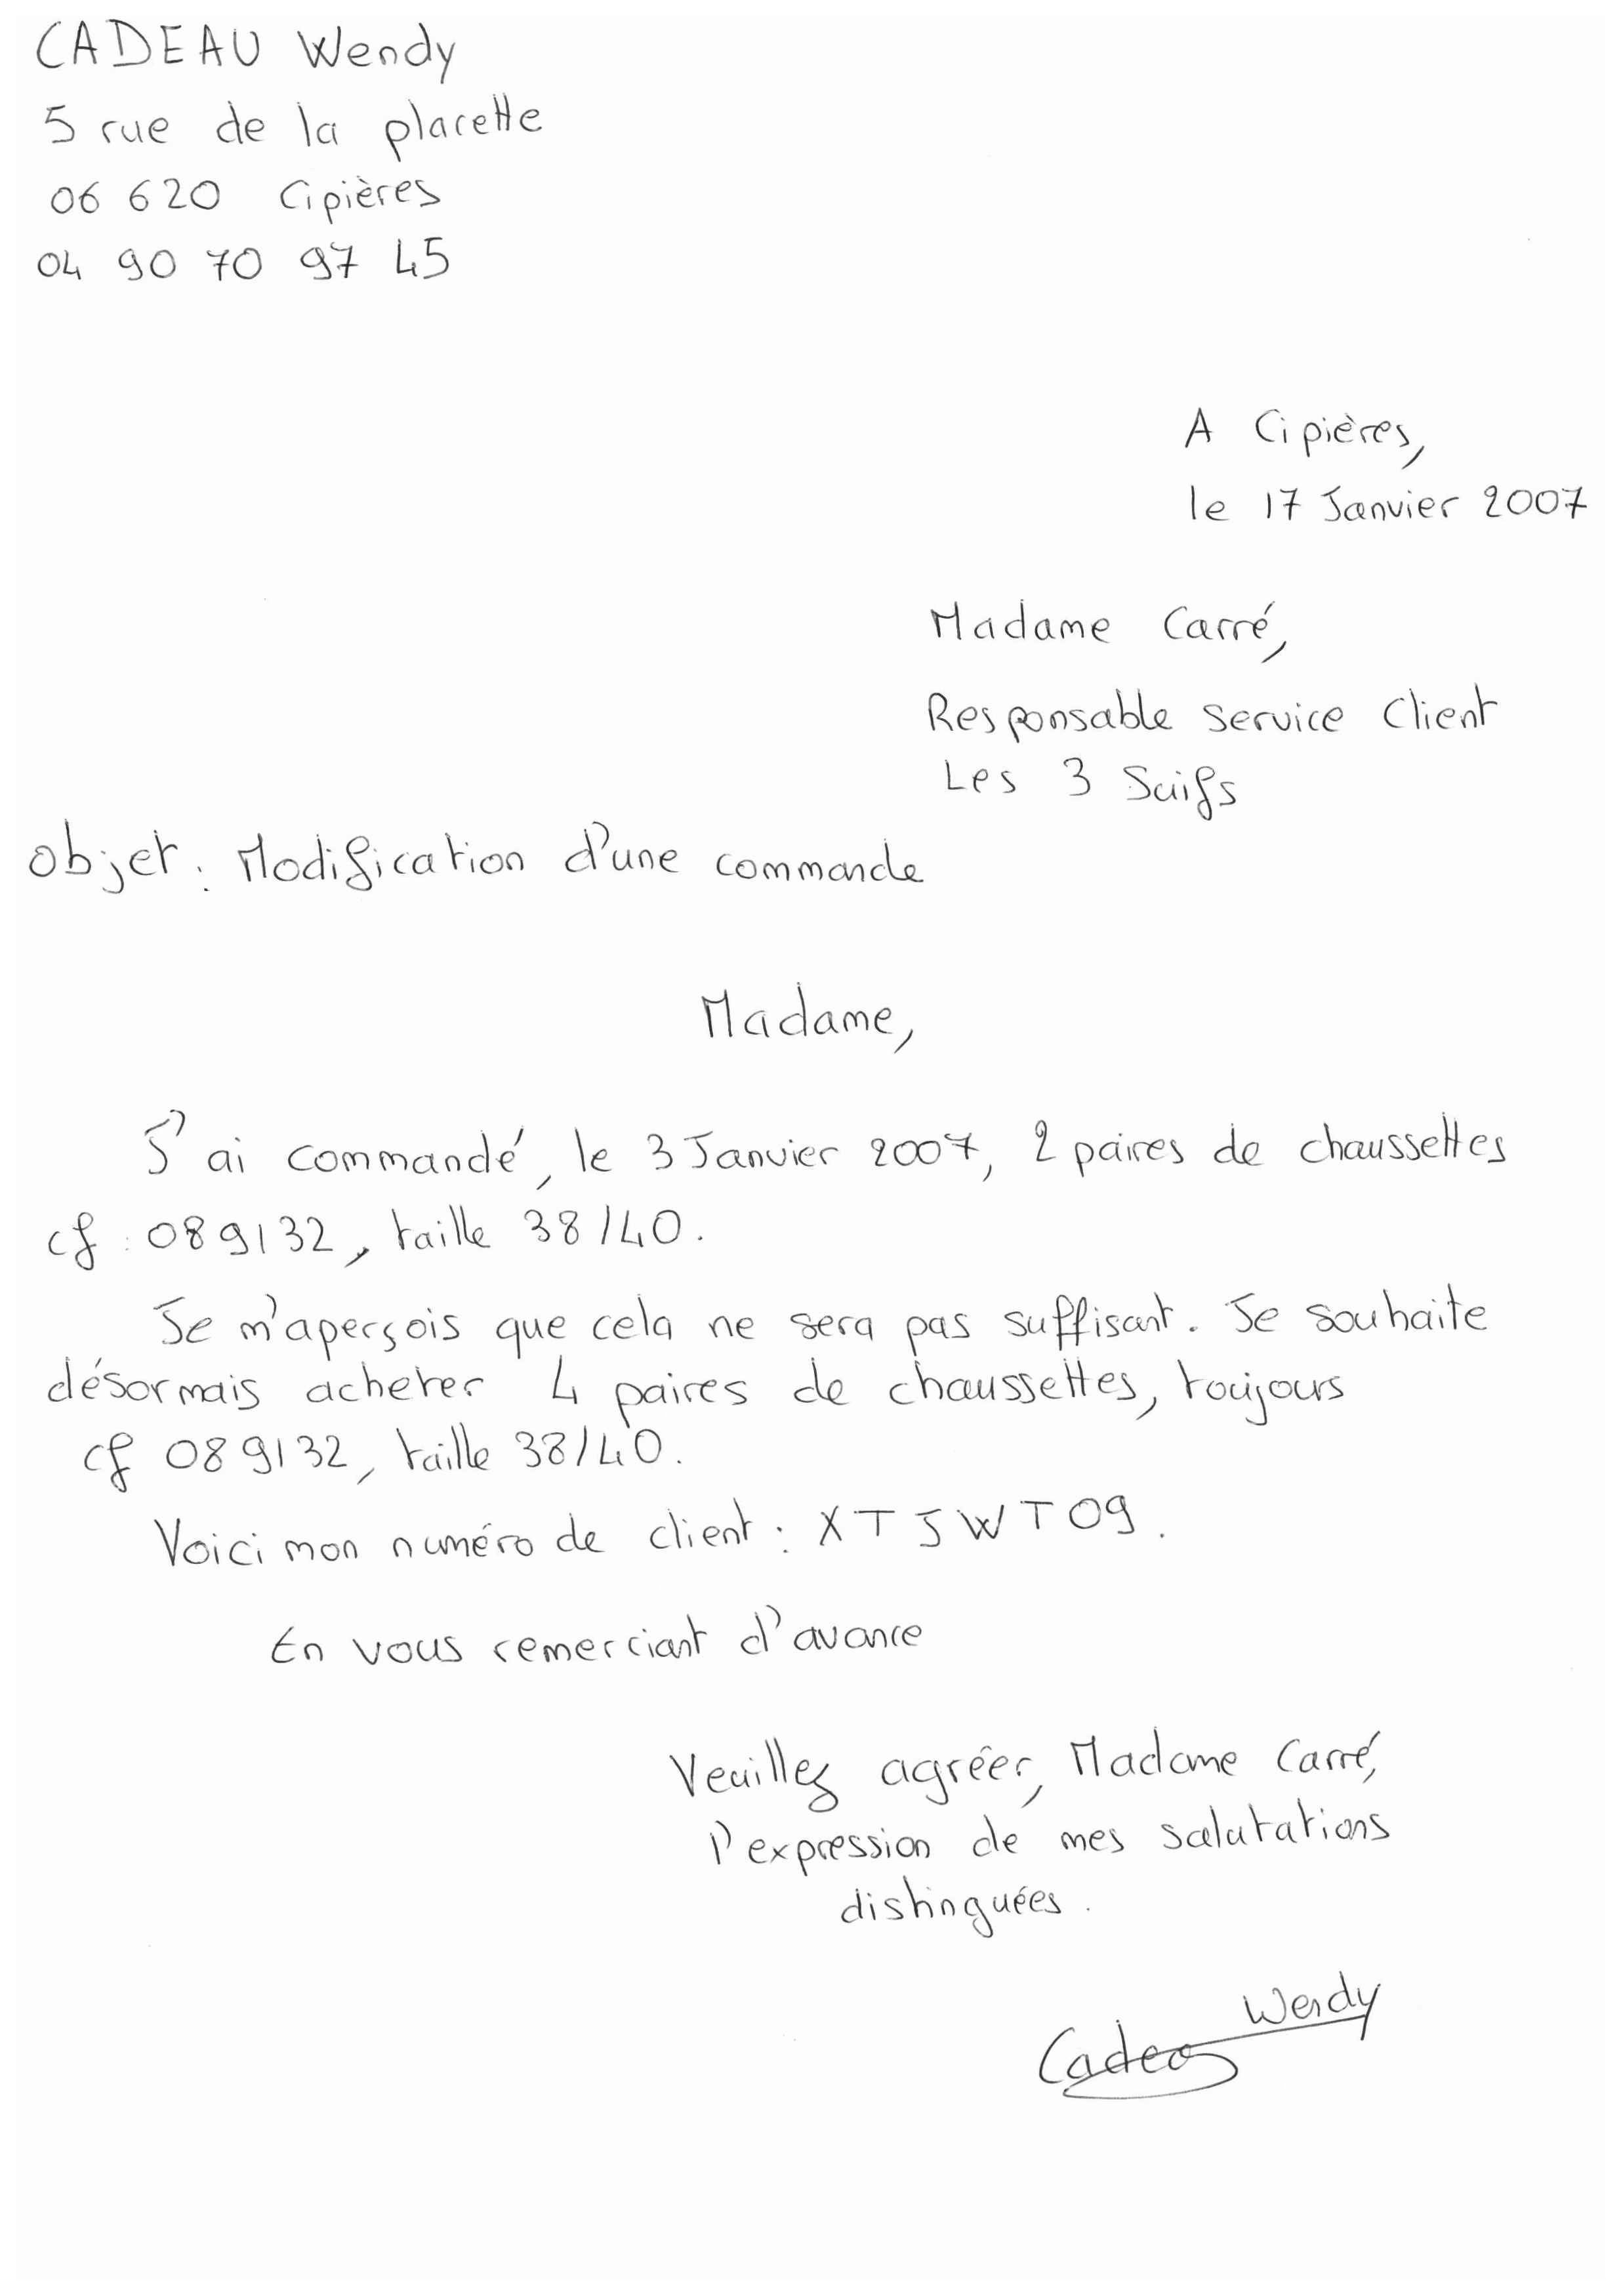 CADEAU Wendy
5 rue de la placette
06 620 Cipières
04 90 70 97 45
A Cipières,
le 17 Janvier 2007
Madame Carré,
Responsable service Client
Les 3 Suifs
objet : Modification d'une commande
Madame,
J'ai commandé, le 3 Janvier 2007, 2 paires de chaussettes
cf : 089132, taille 38/40.
Je m'aperçois que cela ne sera pas suffisant. Je souhaite
désormais acheter 4 paires de chaussettes, toujours
cf 089132, taille 38/40.
Voici mon numéro de client : XTJWT09.
En vous remerciant d'avance
Veuillez agréer, Madame Carré,
l'expression de mes salutations
distinguées.
Wendy
Cadeau